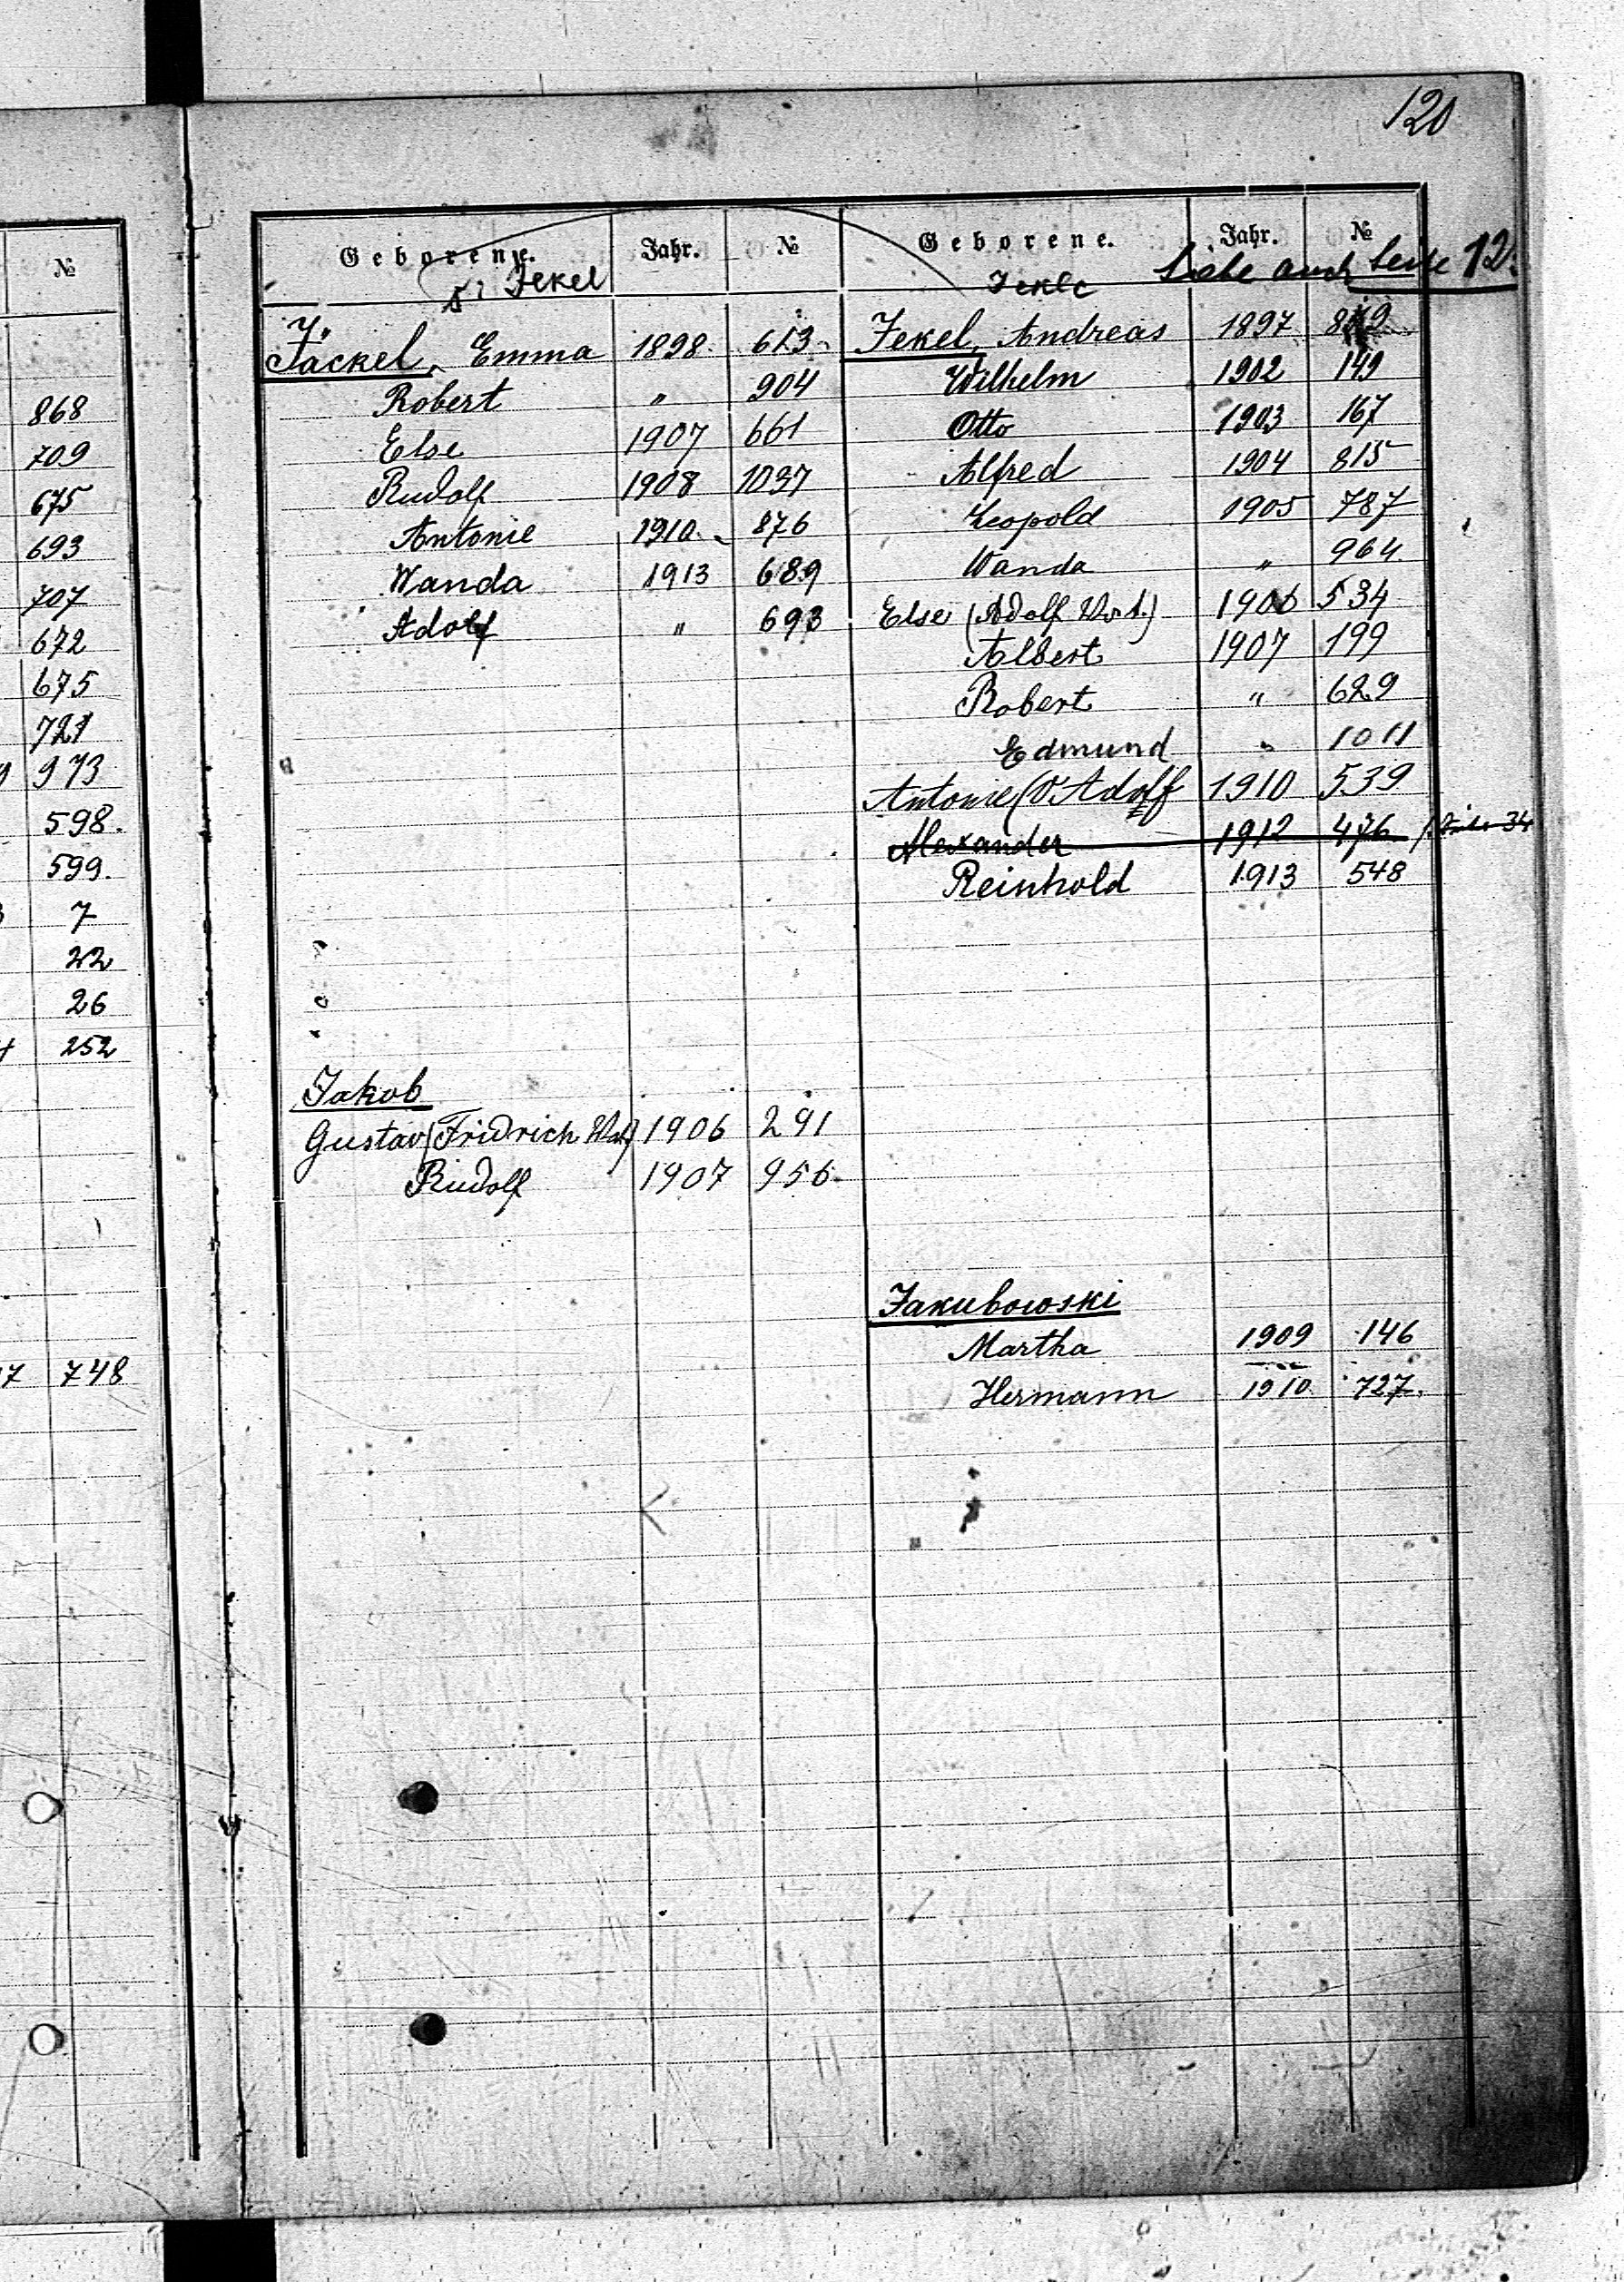 120
№
868
709
675
693
707
672
675
721
973
598.
599.
7
22
26
252
748
Geborene. Jahr. №
s. Jekel
Jäckel, Emma 1898. 613.
Robert " 904
Else 1907 661
Rudolf 1908 1037
Antonie 1910. 876
Wanda 1913 689
Adolf " 693
Jakob
Gustav (Fridrich Vat.) 1906 291
Rudolf 1907 956.
Geborene. Jahr. №
Jekle Siehe auch Seite 12
Jekel, Andreas 1897
Wilhelm 1902 149
Otto 1903 167
Alfred 1904 815
Leopold 1905 787
Wanda " 964.
Else (Adolf Vat.) 1906 534
Albert 1907 199
Robert " 629
Edmund " 1011
Antonie (V. Adolf 1910 539
Alexander 1912 476
Reinhold 1913 548
Jakubowski
Martha 1909 146
Hermann 1910 727.